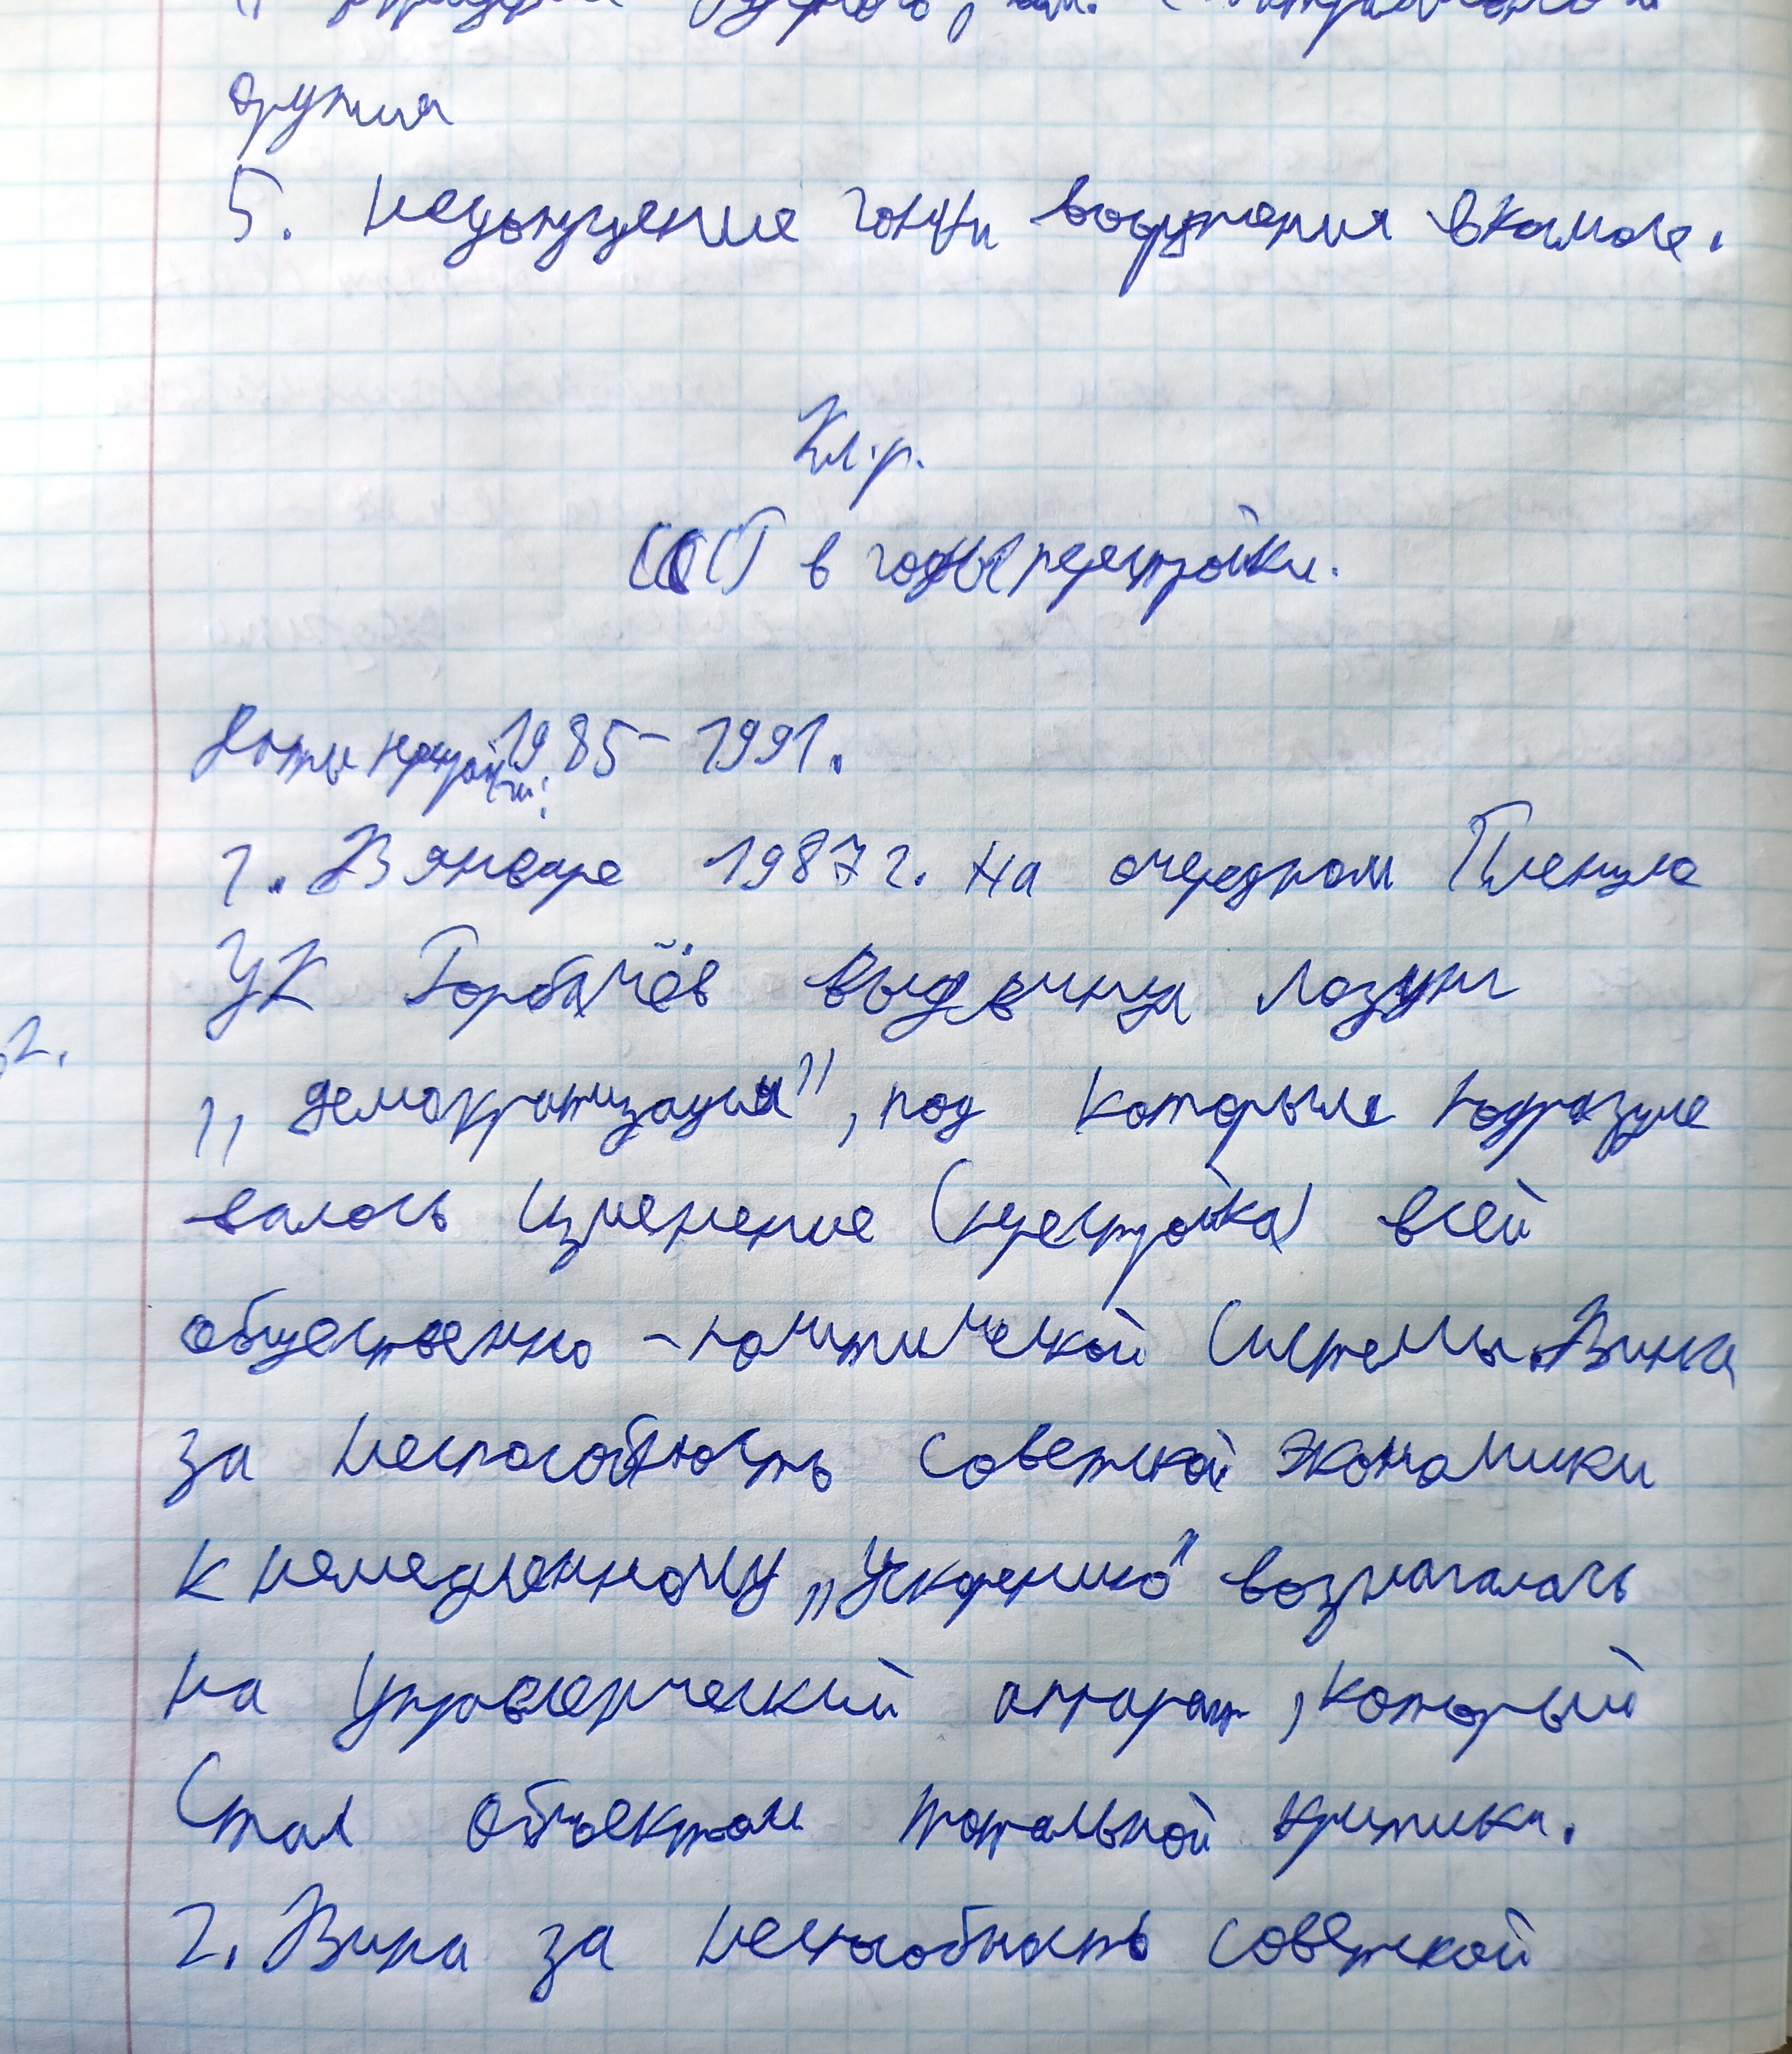 оружия
5. Недопущение гонки вооружения в космосе.
Кл.р.
СССР в годы перестройки.
Даты 1985-1991.
1. В январе 1987 г. на очередном Пленуме
ЦК Горбачёв выдвинул лозунг
„демократизации", под которым подразуме
валось изменение (перестройка) всей
общественно-политической системы. Вина
за неспособность советской экономики
к немедленному „ускорению" возлагалась
на управленческий аппарат, который
стал объектом тотальной критики.
2. Вина за неспособность советской